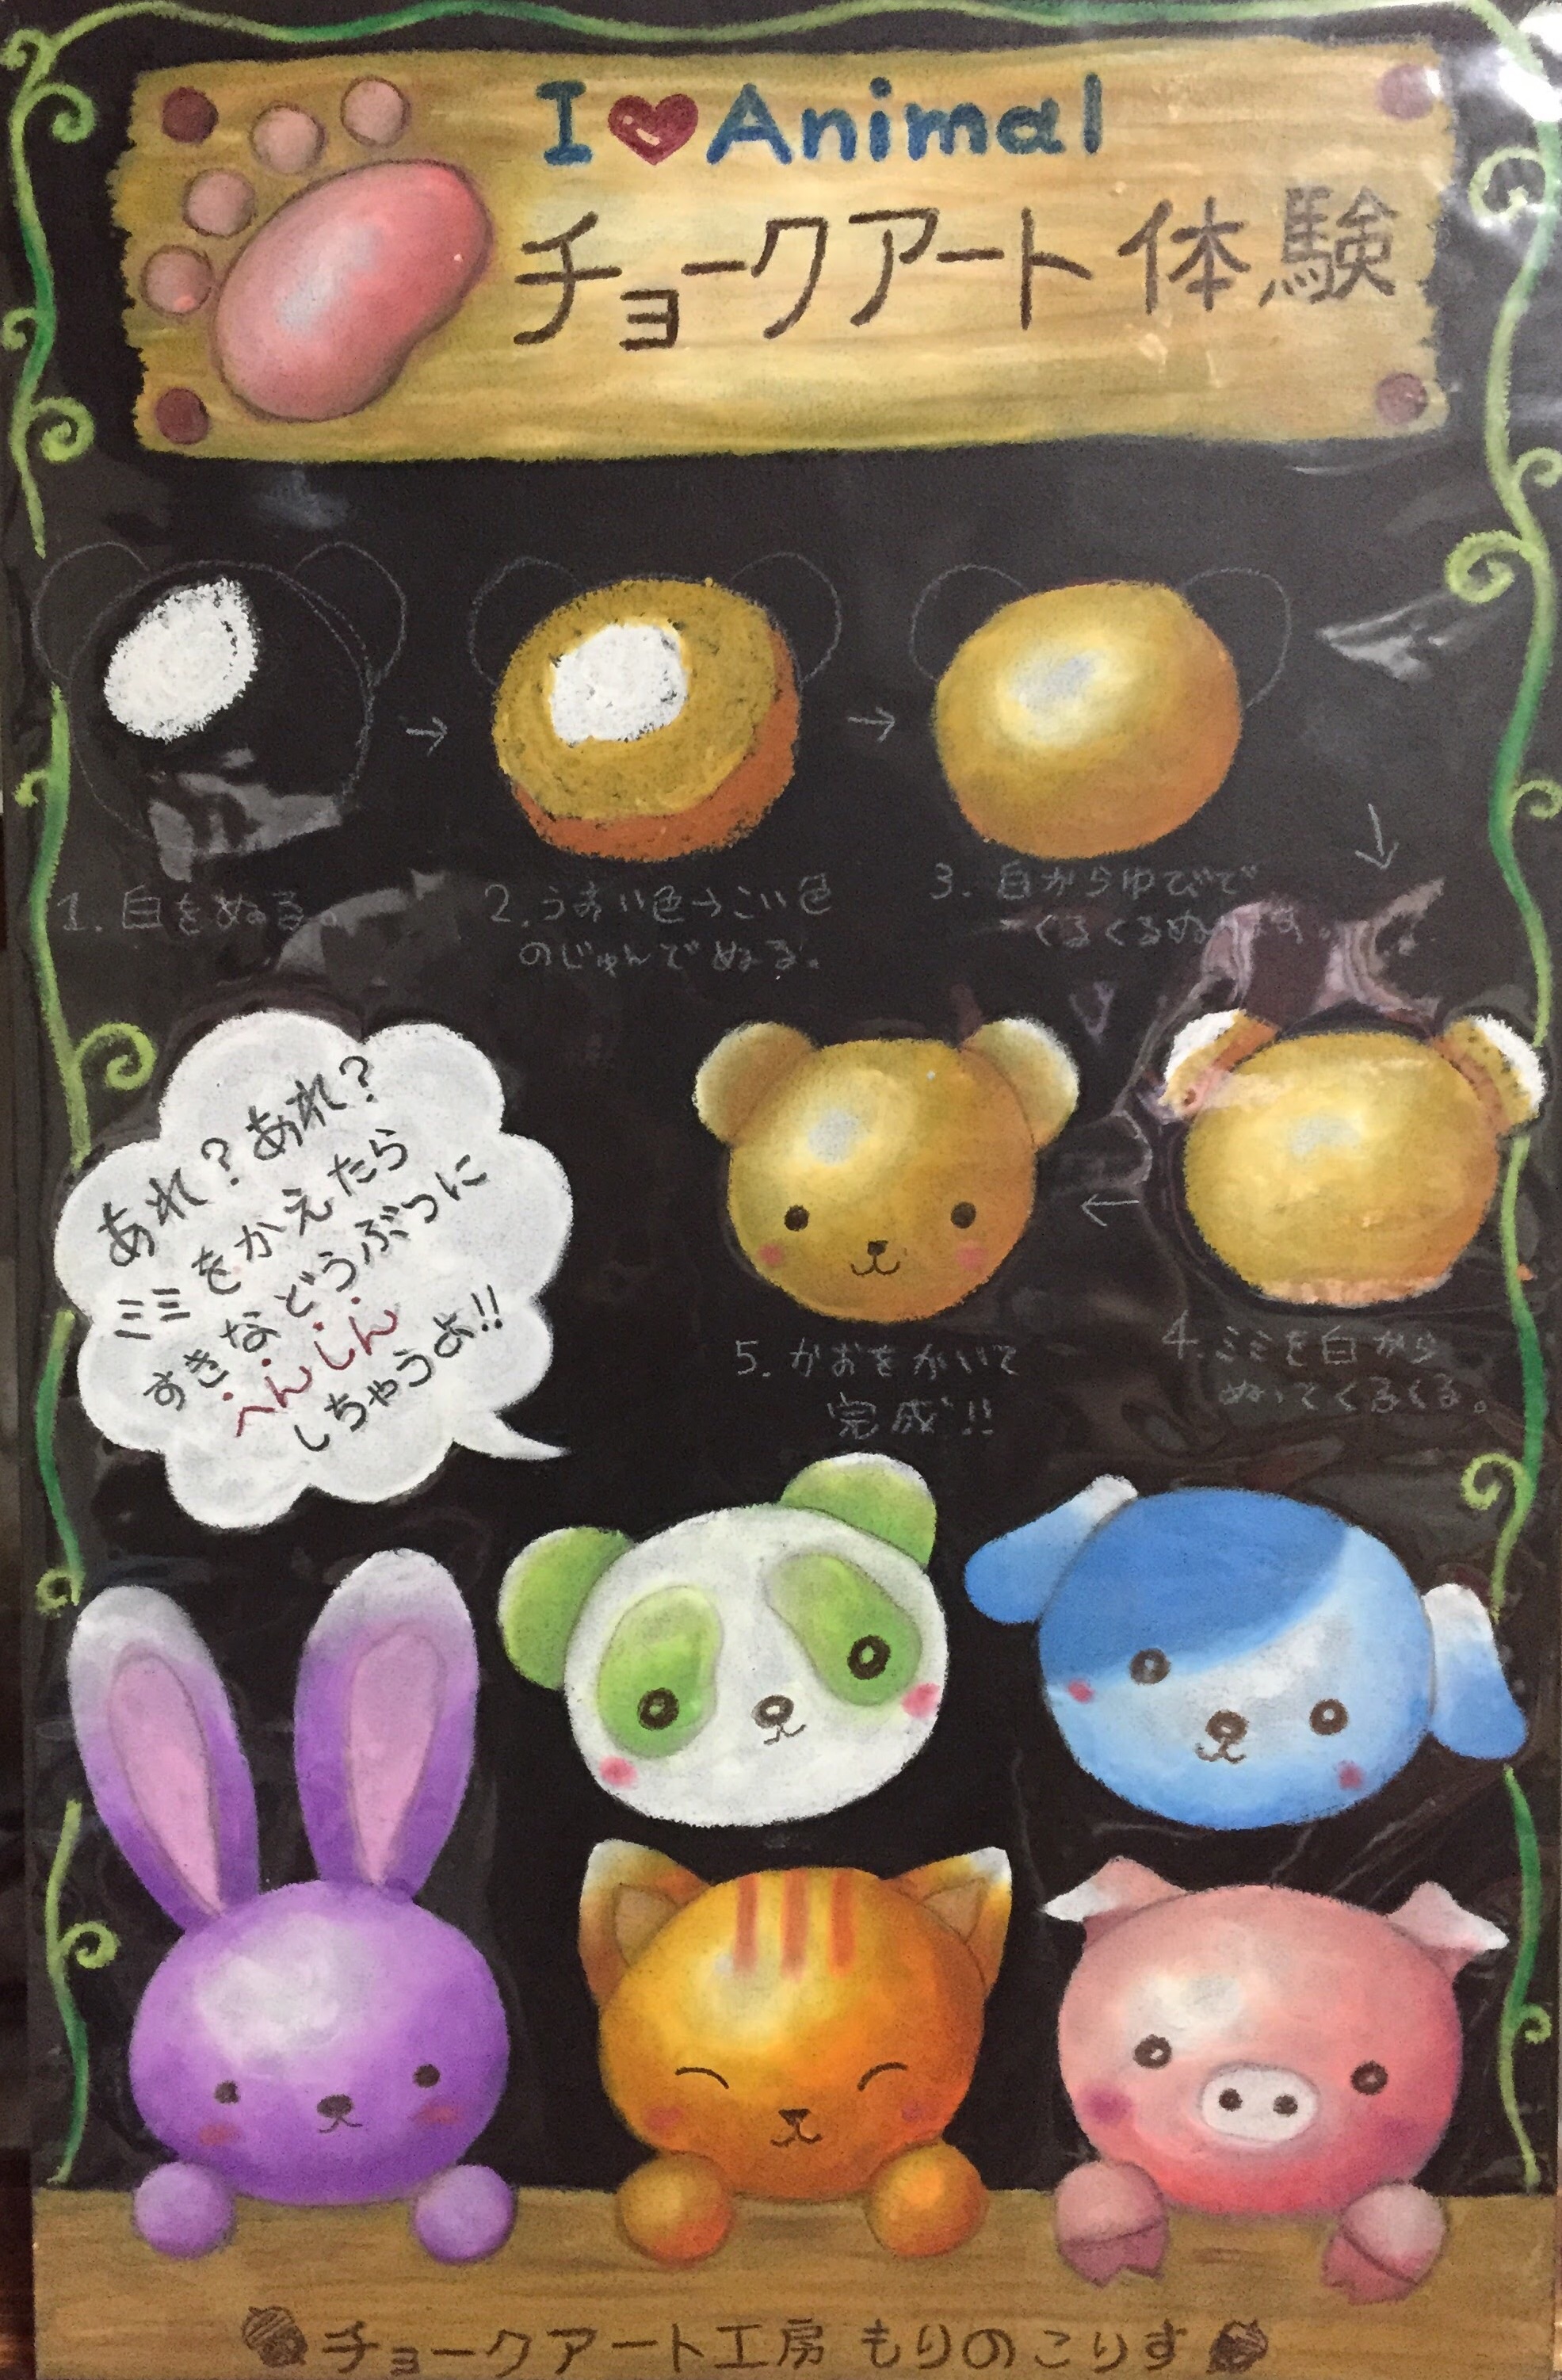 I ♥ Animal
チョークアート体験
1. 白をぬる。
2. うすい色→こい色
のじゅんでぬる。
3. 白からゆびで
くるくるぬ
4. ミミを白から
ぬってくるくる。
5. かおをかいて
完成!!
あれ?あれ?
ミミをかえたら
すきなどうぶつに
へんしん
しちゃうよ!!
チョークアート工房 もりのこりす